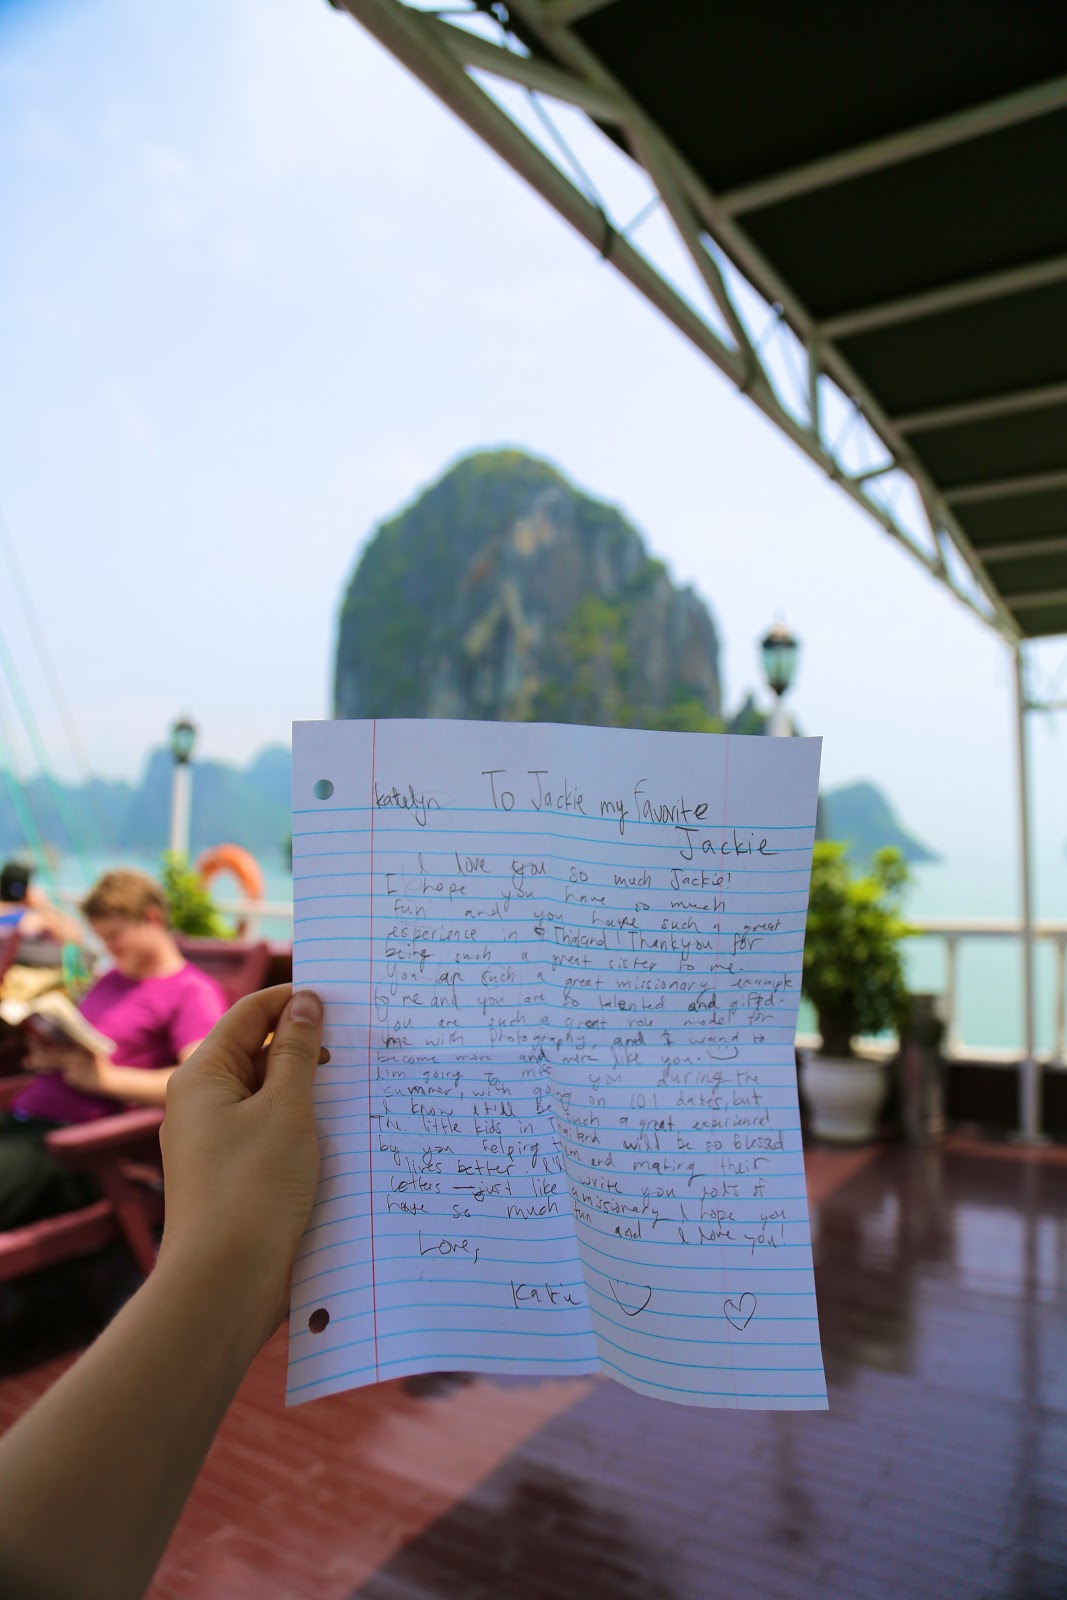 Katelyn To Jackie my favorite
Jackie
I love you so much Jackie!
I hope you have so much
fun and you have such a great
experience in Thailand! Thankyou for
being such a great sister to me.
You are such a great missionary example
to me and you are so talented and gifted.
You are such a great role model for
me with photography, and I want to
become more and more like you.
I'm going to miss you during the
summer, with going on 101 dates, but
I know it'll be such a great experience!
The little kids in Thailand will be so blessed
by you helping them and making their
lives better. I'll write you lots of
letters — just like a missionary. I hope you
have so much fun and I love you!
Love,
Katie